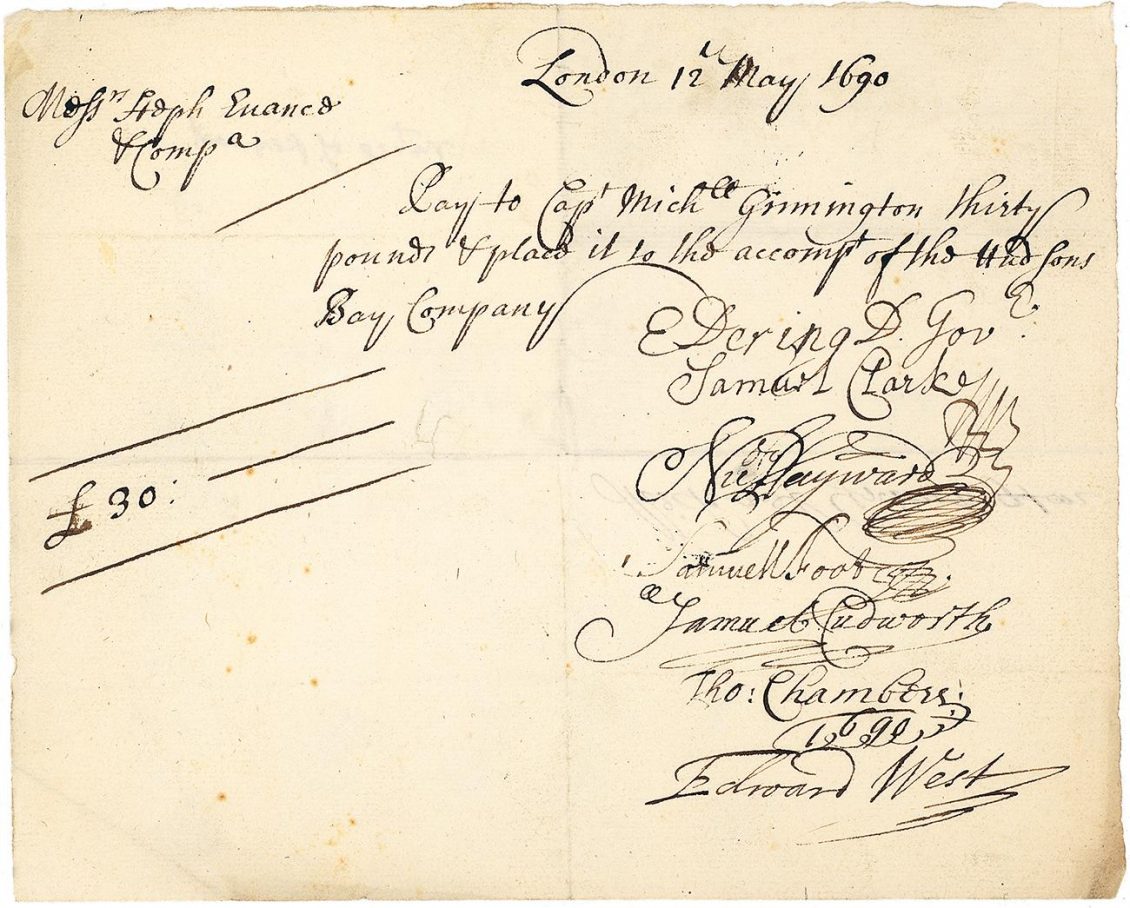 London 12th May 1690
Messrs Steph Evance
& Compa
Pay to Capt Michll Grimington thirty
pounds & place it to the accompt of the Hudsons
Bay Company
E Dering D. Govr.
Samuel Clarke
£ 30:
Nic Hayward
Samuell Foot
Samuel Cudworth
Tho: Chambers
Edward West